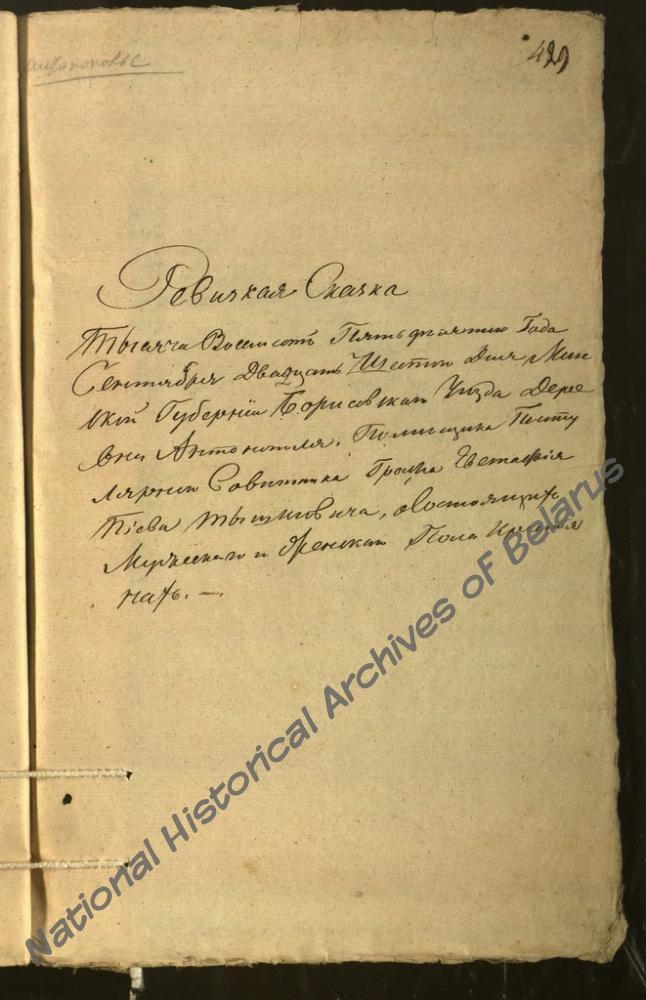 429
Ревизкая Сказка
Тысяча Восемсотъ Пятьдесятаго Года
Сентября Двадцать Шестаго Дня Мин
ской Губерніи Борисовскаго Уезда Дерев
вни Антонополя, Помещика Титу
лярнаго Советника Графа Евстафія
Тышкевича, о Состоящихъ
Мужескаго и Женскаго Пола Крестья
нахъ. —
National Historical Archives of Belarus